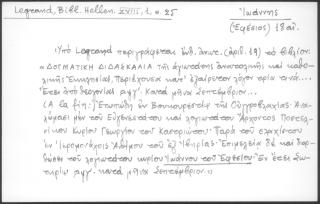 Legrand, Bibl. Hellen. XVIII, 1, σ. 25
Ἰωάννης
(Ἐφέσιος) 18 αἰ.
Ὑπὸ Legrand περιγράφεται ἐνθ. ἀνωτ. (ἀριθ. 19) τὸ βιβλίον:
«ΔΟΓΜΑΤΙΚΗ ΔΙΔΑΣΚΑΛΙΑ τῆς ἁγιωτάτης ἀνατολικῆς καὶ καθο-
λικῆς Ἐκκλησίας, Περιέχουσα κατ' ἐξαίρετον λόγον τρία τινά...
Ἔτει ἀπὸ θεογονίας αψγ'. Κατὰ μῆνα Σεπτέμβριον...
(A la fin:) Ἐτυπώθη ἐν Βουκουρεστίῳ τῆς Οὑγγροβλαχίας: Ἀνα-
λώμασι μὲν τοῦ Εὐγενεστάτου καὶ λογιωτάτου Ἄρχοντος Ποστελ-
νίκου Κυρίου Γεωργίου τοῦ Καστριώτου: Παρὰ τοῦ ἐλαχίστου
ἐν Ἱερομονάχοις Ἀνθίμου τοῦ ἐξ Ἰβηρίας: Ἐπιμελείᾳ δὲ καὶ διορ-
θώσει τοῦ λογιωτάτου κυρίου Ἰωάννου τοῦ Ἐφεσίου. Ἐν ἔτει Σω-
τηρίῳ αψγ. κατὰ μῆνα Σεπτέμβριον.»